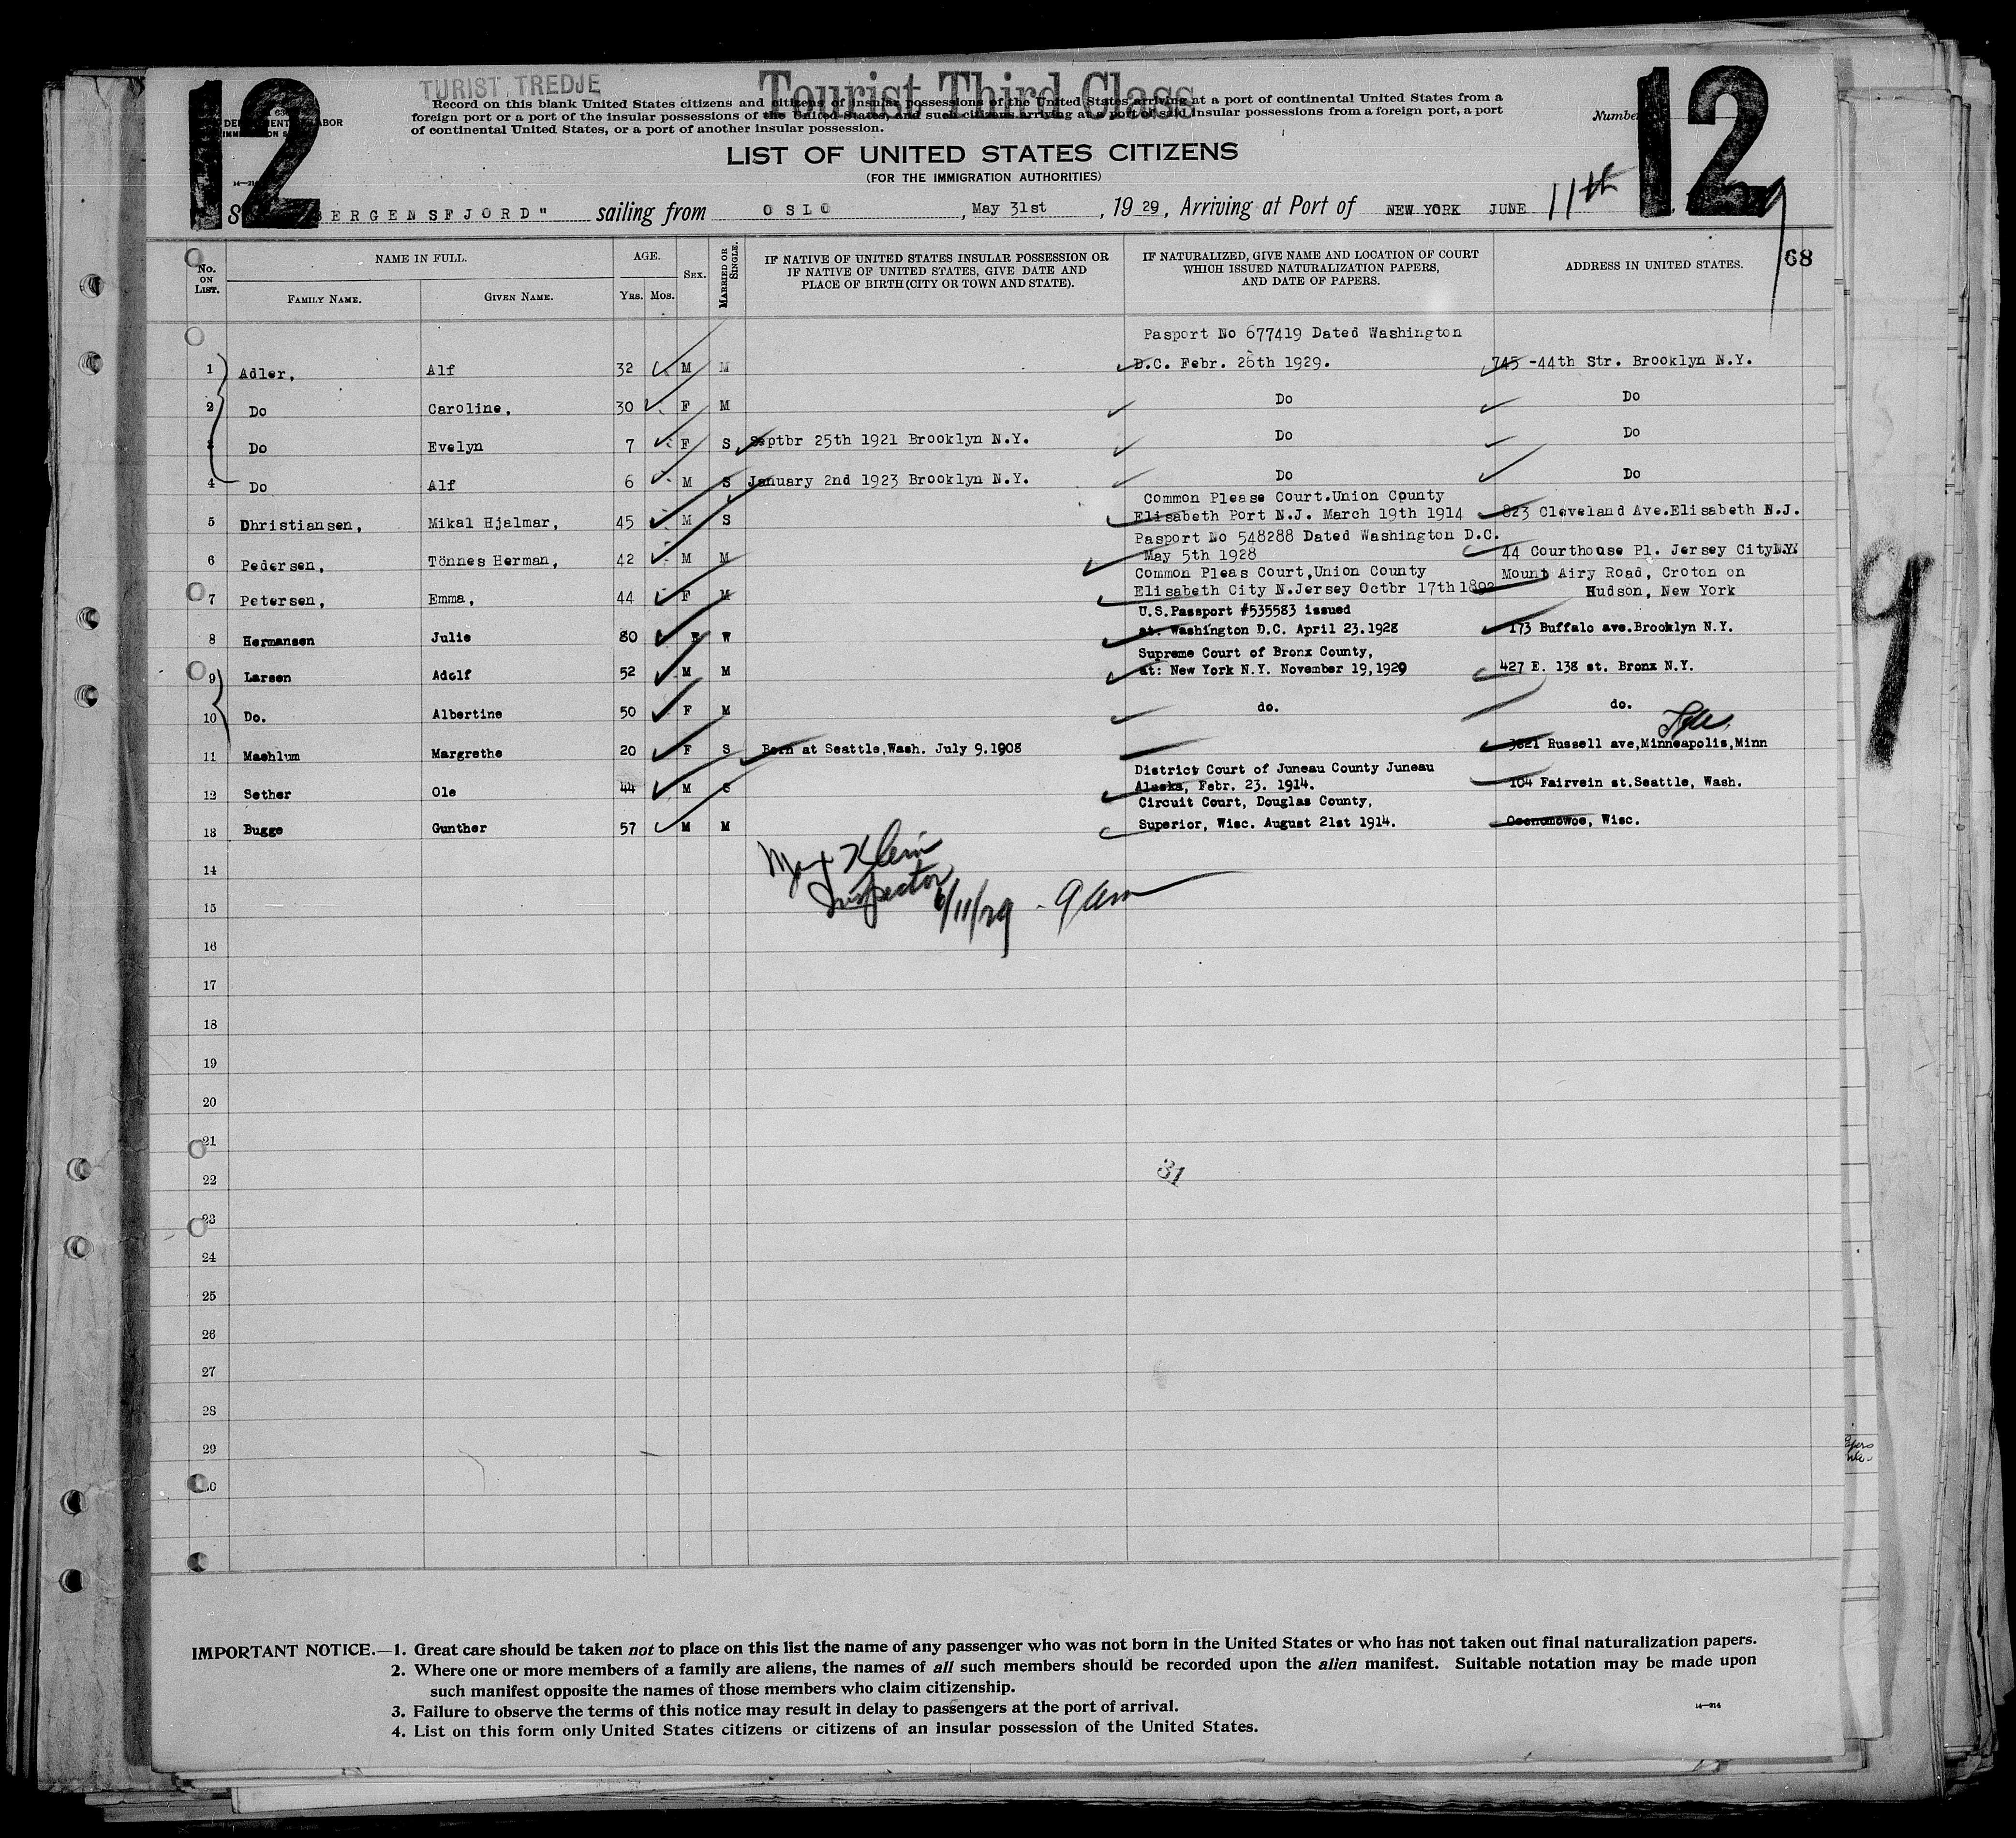 12
TURIST TREDJE
Tourist Third Class
12
Record on this blank United States citizens and citizens of insular possessions of the United States arriving at a port of continental United States from a
foreign port or a port of the insular possessions of the United States, and such citizens arriving at a port of said insular possessions from a foreign port, a port
of continental United States, or a port of another insular possession.
LIST OF UNITED STATES CITIZENS
(FOR THE IMMIGRATION AUTHORITIES)
BERGENSFJORD" sailing from OSLO, May 31st, 1929, Arriving at Port of NEW YORK JUNE 11th
68
No. ON LIST. NAME IN FULL. AGE. SEX. MARRIED OR SINGLE. IF NATIVE OF UNITED STATES INSULAR POSSESSION OR IF NATIVE OF UNITED STATES, GIVE DATE AND PLACE OF BIRTH (CITY OR TOWN AND STATE). IF NATURALIZED, GIVE NAME AND LOCATION OF COURT WHICH ISSUED NATURALIZATION PAPERS, AND DATE OF PAPERS. ADDRESS IN UNITED STATES.
FAMILY NAME. GIVEN NAME. YRS. MOS.
Pasport No 677419 Dated Washington
1 Adler, Alf 32 M M D.C. Febr. 26th 1929. 745 -44th Str. Brooklyn N.Y.
2 Do Caroline, 30 F M Do Do
3 Do Evelyn 7 F S Septbr 25th 1921 Brooklyn N.Y. Do Do
4 Do Alf 6 M S January 2nd 1923 Brooklyn N.Y. Do Do
Common Please Court.Union County
5 Dhristiansen, Mikal Hjalmar, 45 M S Elisabeth Port N.J. March 19th 1914 823 Cleveland Ave.Elisabeth N.J.
Pasport No 548288 Dated Washington D.C.
6 Pedersen, Tönnes Herman, 42 M M May 5th 1928 44 Courthouse Pl. Jersey City N.Y.
Common Pleas Court,Union County Mount Airy Road, Croton on
7 Petersen, Emma, 44 F M Elisabeth City N.Jersey Octbr 17th 1892 Hudson, New York
U.S.Passport #535583 issued
8 Hermansen Julie 80 F W at: Washington D.C. April 23.1928 173 Buffalo ave.Brooklyn N.Y.
Supreme Court of Bronx County,
9 Larsen Adolf 52 M M at: New York N.Y. November 19,1929 427 E. 138 st. Bronx N.Y.
10 Do. Albertine 50 F M do. do.
11 Maehlum Margrethe 20 F S Born at Seattle,Wash. July 9.1908 3821 Russell ave,Minneapolis,Minn
District Court of Juneau County Juneau
12 Sether Ole 44 M S Alaska, Febr. 23. 1914. 104 Fairvein st.Seattle, Wash.
Circuit Court, Douglas County,
13 Bugge Gunther 57 M M Superior, Wisc. August 21st 1914. Oconomowoc, Wisc.
Max Klein
Inspector 6/11/29 - 9 am
14
15
16
17
18
19
20
21
22
31
23
24
25
26
27
28
29
30
9
IMPORTANT NOTICE.—1. Great care should be taken not to place on this list the name of any passenger who was not born in the United States or who has not taken out final naturalization papers.
2. Where one or more members of a family are aliens, the names of all such members should be recorded upon the alien manifest. Suitable notation may be made upon
such manifest opposite the names of those members who claim citizenship.
3. Failure to observe the terms of this notice may result in delay to passengers at the port of arrival.
14—214
4. List on this form only United States citizens or citizens of an insular possession of the United States.